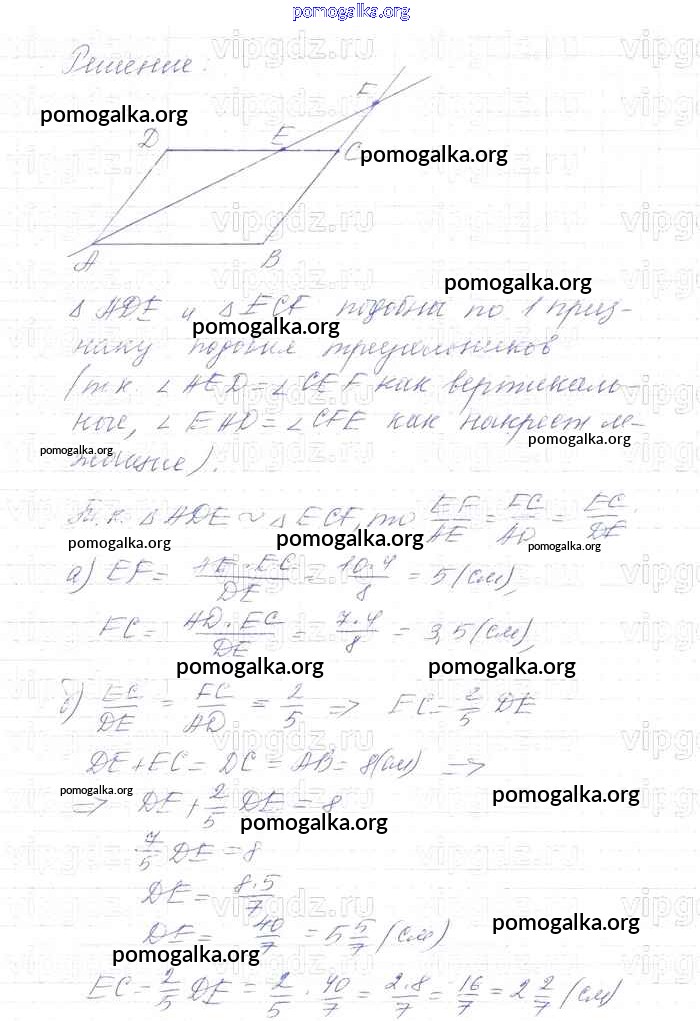 pomogalka.org
Решение:
pomogalka.org
F
D E C
pomogalka.org
A B
pomogalka.org
△ ADE и △ ECF подобны по 1 приз-
pomogalka.org
наку подобия треугольников
(т.к. ∠ AED = ∠ CEF как вертикаль-
ные, ∠ EAD = ∠ CFE как накрест ле-
pomogalka.org pomogalka.org
жащие).
Т.к. △ ADE ~ △ ECF, то EF/AE = FC/AD = EC/DE
pomogalka.org pomogalka.org pomogalka.org
а) EF = AE·EC/DE = 10·4/8 = 5 (см),
FC = AD·EC/DE = 7·4/8 = 3,5 (см),
pomogalka.org pomogalka.org
б) EC/DE = FC/AD = 2/5 => EC = 2/5 DE
DE + EC = DC = AB = 8 (см) =>
pomogalka.org pomogalka.org
=> DE + 2/5 DE = 8
pomogalka.org
7/5 DE = 8
DE = 8·5/7
DE = 40/7 = 5 5/7 (см)
pomogalka.org
pomogalka.org
EC = 2/5 DE = 2/5 · 40/7 = 2·8/7 = 16/7 = 2 2/7 (см)